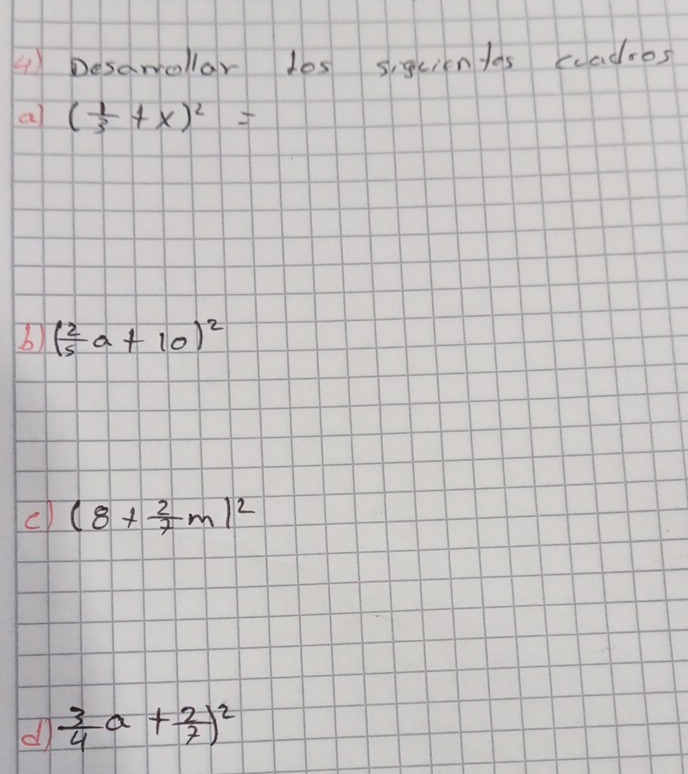 4) Desarrollar los siguientes cuadros
a) (1/3 + x)² =
b) (2/5 a + 10)²
c) (8 + 2/7 m)²
d) 3/4 a + 2/7)²